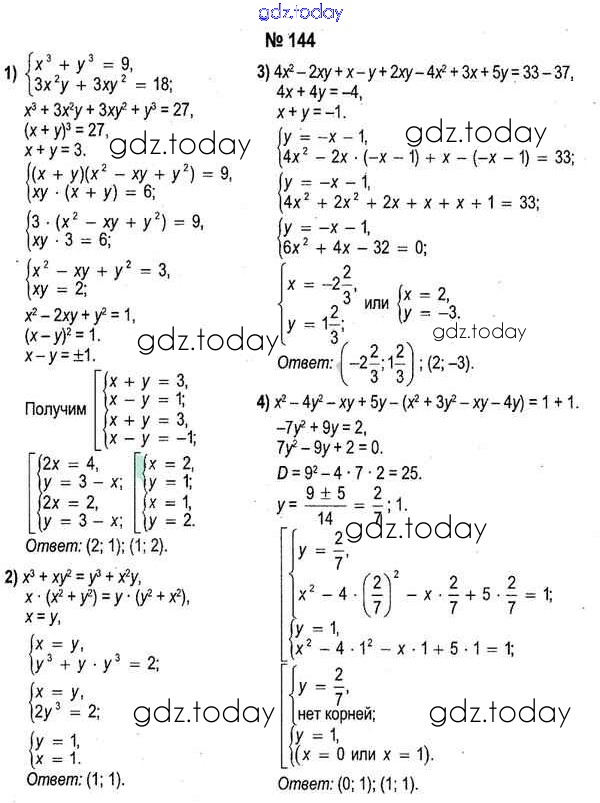 gdz.today
№ 144
1) {x³ + y³ = 9,
{3x²y + 3xy² = 18;
x³ + 3x²y + 3xy² + y³ = 27,
(x + y)³ = 27,
x + y = 3.
gdz.today
{(x + y)(x² − xy + y²) = 9,
{xy · (x + y) = 6;
{3 · (x² − xy + y²) = 9,
{xy · 3 = 6;
{x² − xy + y² = 3,
{xy = 2;
x² − 2xy + y² = 1,
(x − y)² = 1.
x − y = ±1.
gdz.today
Получим [{x + y = 3,
{x − y = 1;
{x + y = 3,
{x − y = −1;
[{2x = 4, [{x = 2,
{y = 3 − x; {y = 1;
{2x = 2, {x = 1,
{y = 3 − x; {y = 2.
Ответ: (2; 1); (1; 2).
2) x³ + xy² = y³ + x²y,
x · (x² + y²) = y · (y² + x²),
x = y,
{x = y,
{y³ + y · y³ = 2;
{x = y,
{2y³ = 2;
gdz.today
{y = 1,
{x = 1.
Ответ: (1; 1).
3) 4x² − 2xy + x − y + 2xy − 4x² + 3x + 5y = 33 − 37,
4x + 4y = −4,
x + y = −1.
gdz.today
{y = −x − 1,
{4x² − 2x · (−x − 1) + x − (−x − 1) = 33;
{y = −x − 1,
{4x² + 2x² + 2x + x + x + 1 = 33;
{y = −x − 1,
{6x² + 4x − 32 = 0;
{x = −2 2/3, или {x = 2,
{y = 1 2/3; {y = −3.
gdz.today
Ответ: (−2 2/3; 1 2/3); (2; −3).
4) x² − 4y² − xy + 5y − (x² + 3y² − xy − 4y) = 1 + 1.
−7y² + 9y = 2,
7y² − 9y + 2 = 0.
D = 9² − 4 · 7 · 2 = 25.
y = (9 ± 5)/14 = 2/7; 1.
gdz.today
[{y = 2/7,
{x² − 4 · (2/7)² − x · 2/7 + 5 · 2/7 = 1;
{y = 1,
{x² − 4 · 1² − x · 1 + 5 · 1 = 1;
[{y = 2/7,
{нет корней;
gdz.today
{y = 1,
{(x = 0 или x = 1).
Ответ: (0; 1); (1; 1).